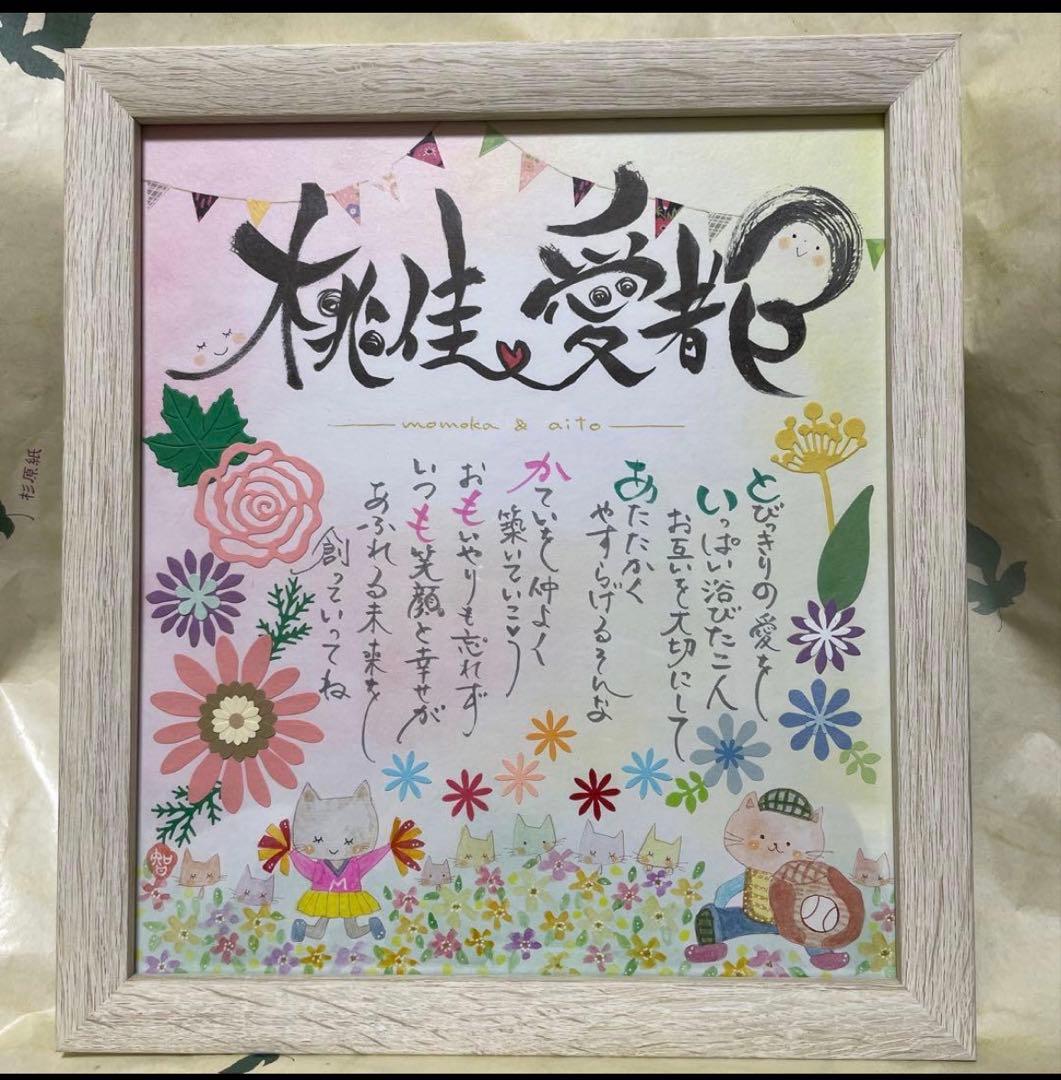 桃佳 愛都
momoka & aito
とびっきりの愛を
いっぱい浴びた二人
お互いを大切にして
あたたかく
やすらげるそんな
かていを仲よく
築いていこう
おもいやりも忘れず
いつも笑顔と幸せが
あふれる未来を
創っていってね
智
M
杉原紙